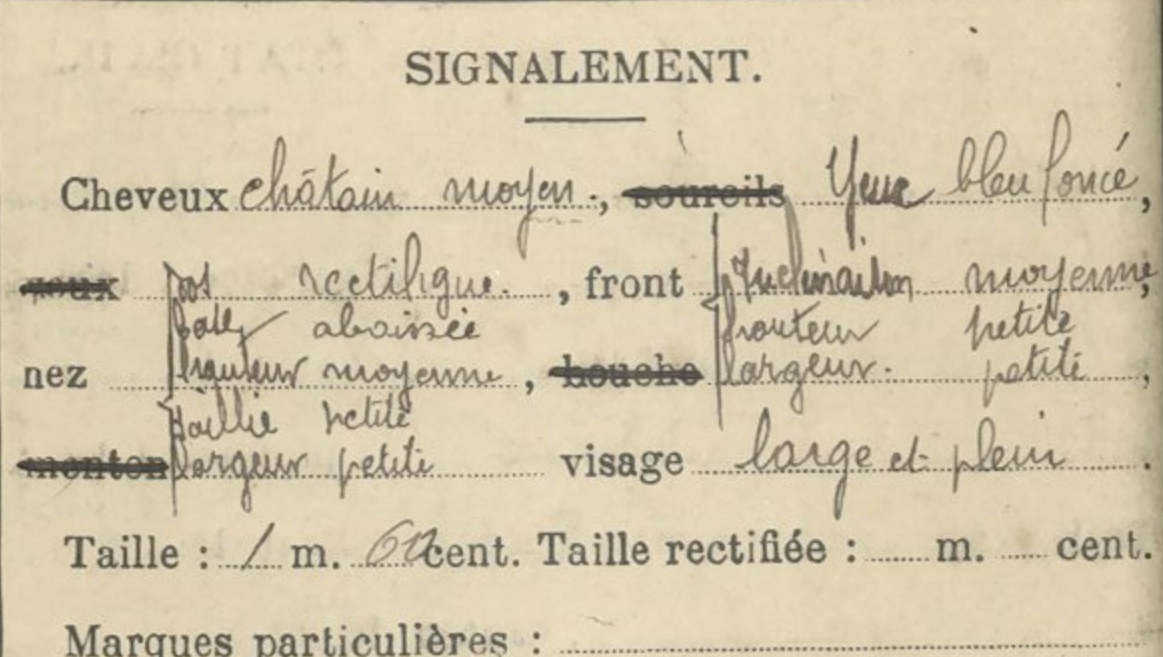 SIGNALEMENT.
Cheveux châtain moyen, sourcils Yeux bleu foncé,
yeux dos rectiligne, front Inclinaison moyenne,
base abaissée hauteur petite
nez hauteur moyenne, bouche largeur petite,
saillie petite
menton largeur petite visage large et plein.
Taille : 1 m. cent. Taille rectifiée : m. cent.
Marques particulières :